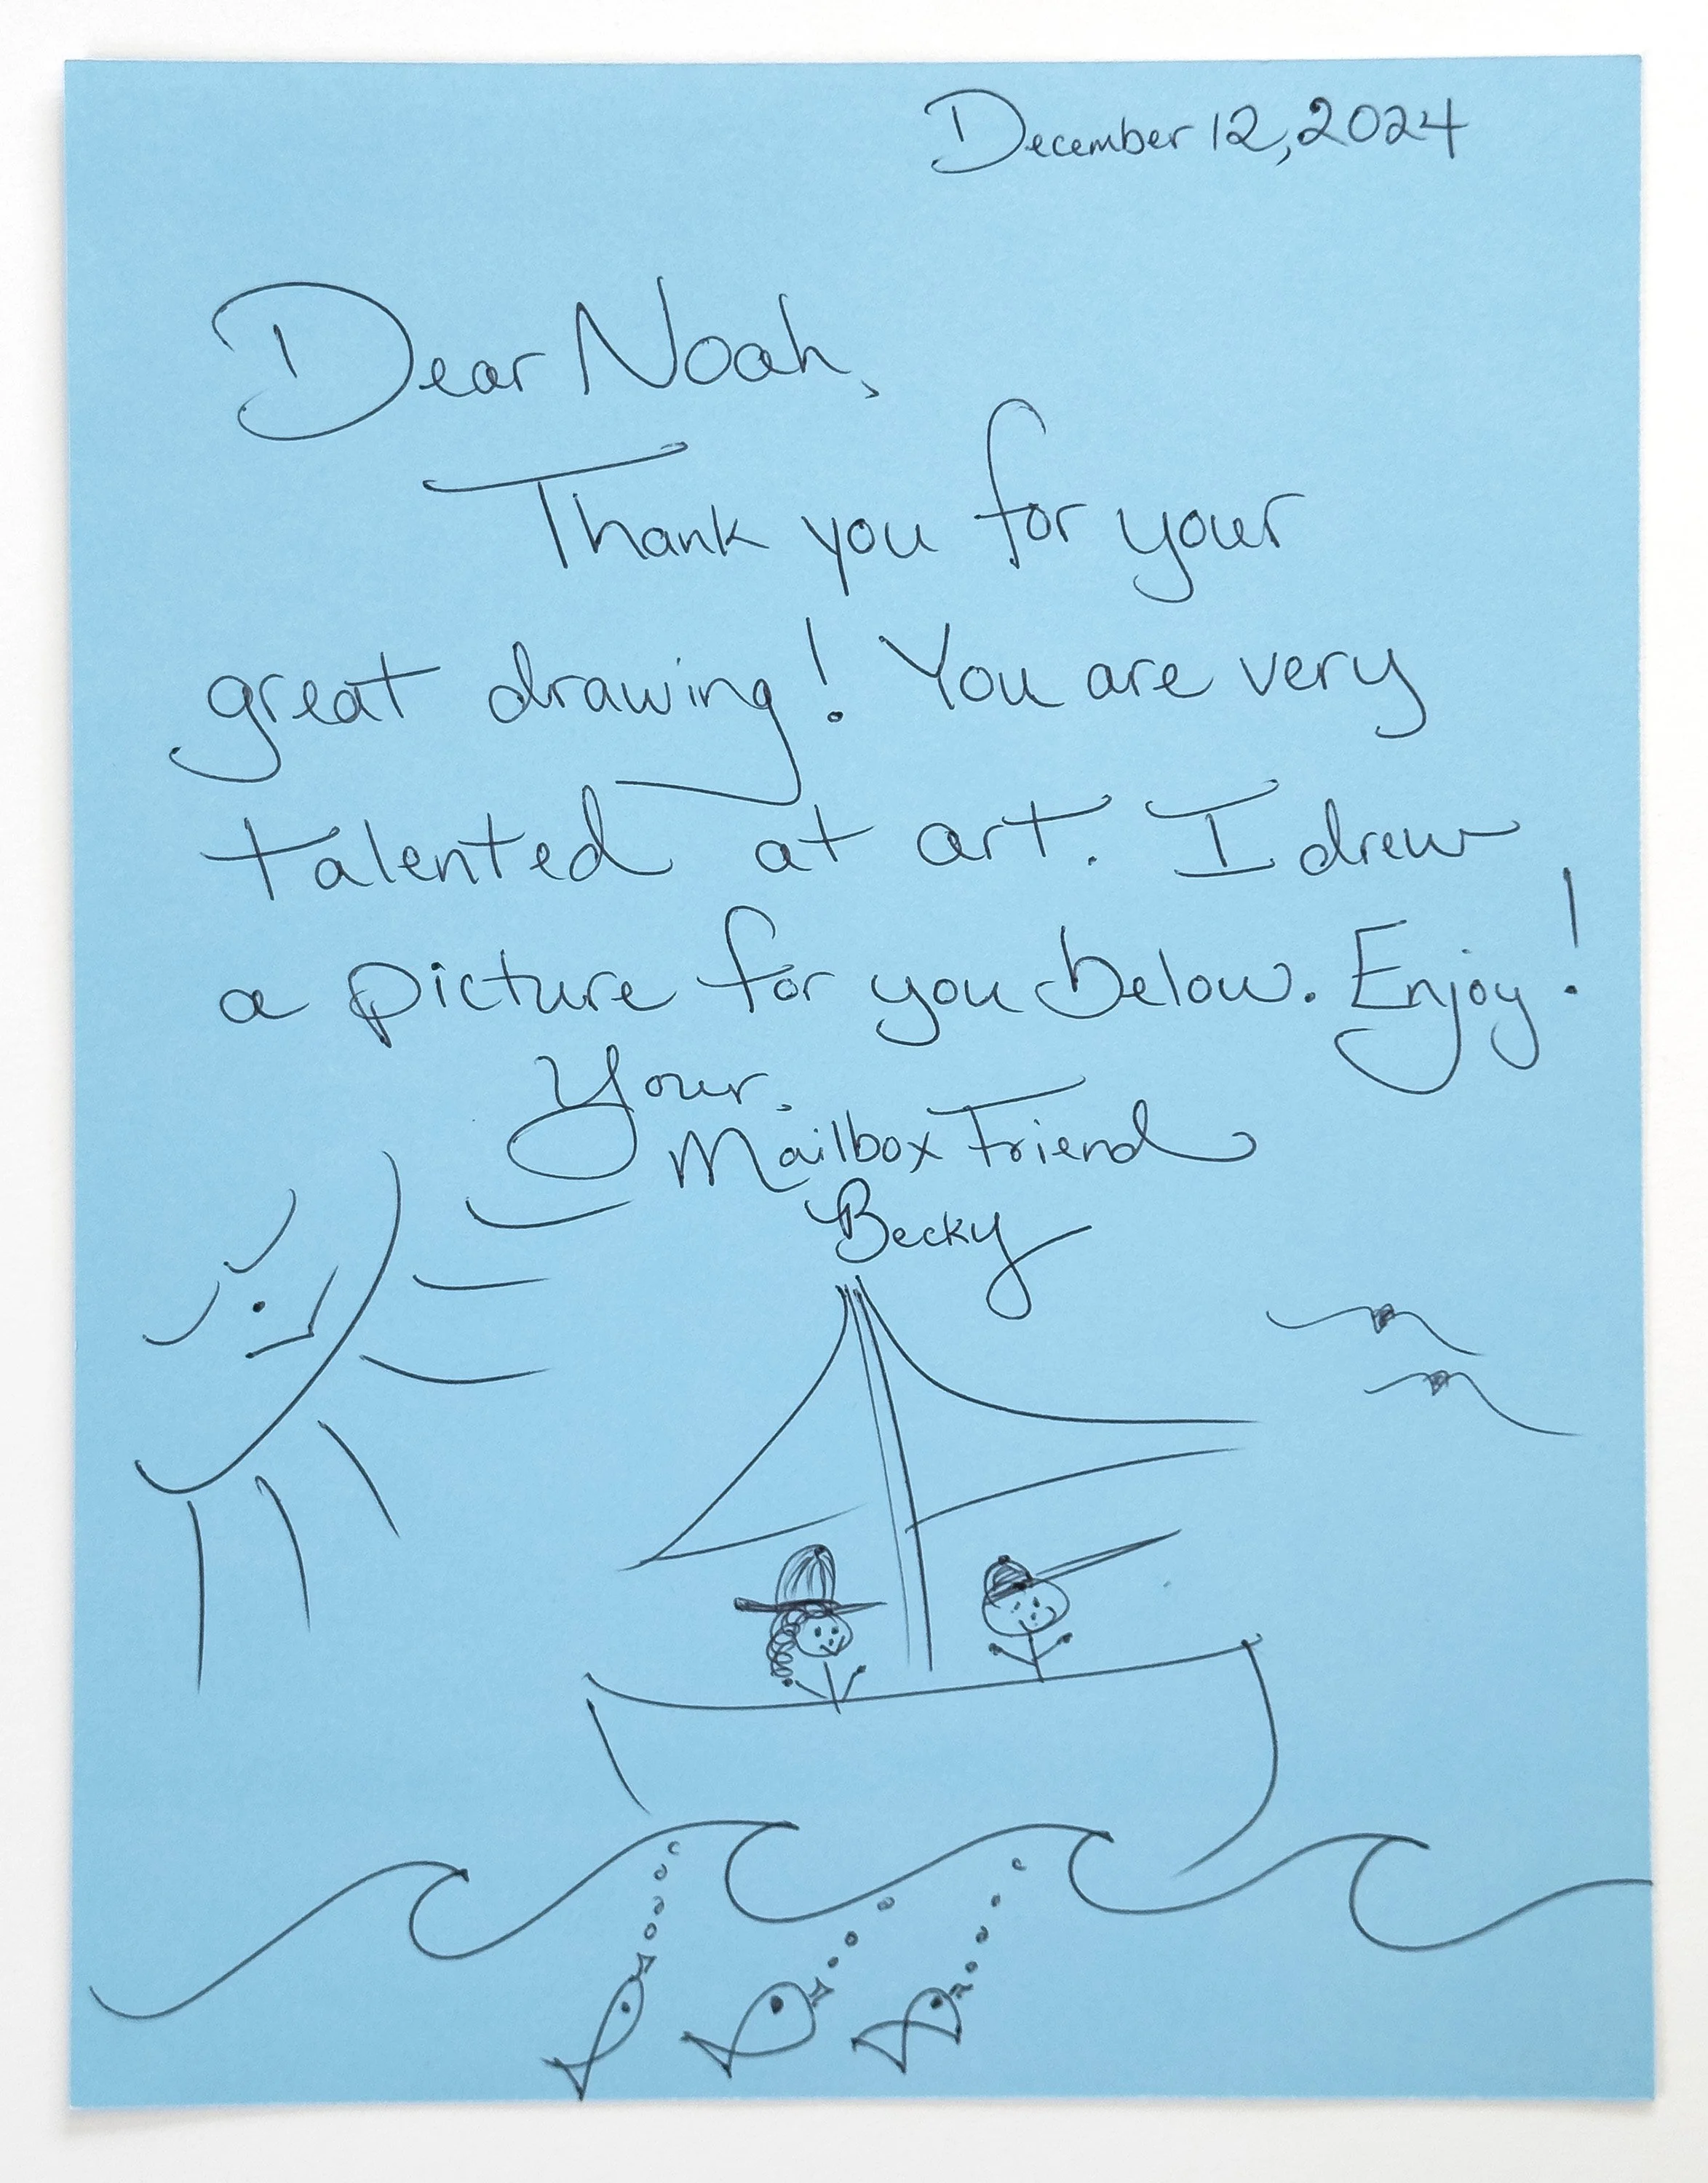 December 12, 2024
Dear Noah,
Thank you for your
great drawing! You are very
talented at art. I drew
a picture for you below. Enjoy!
Your,
Mailbox Friend
Becky